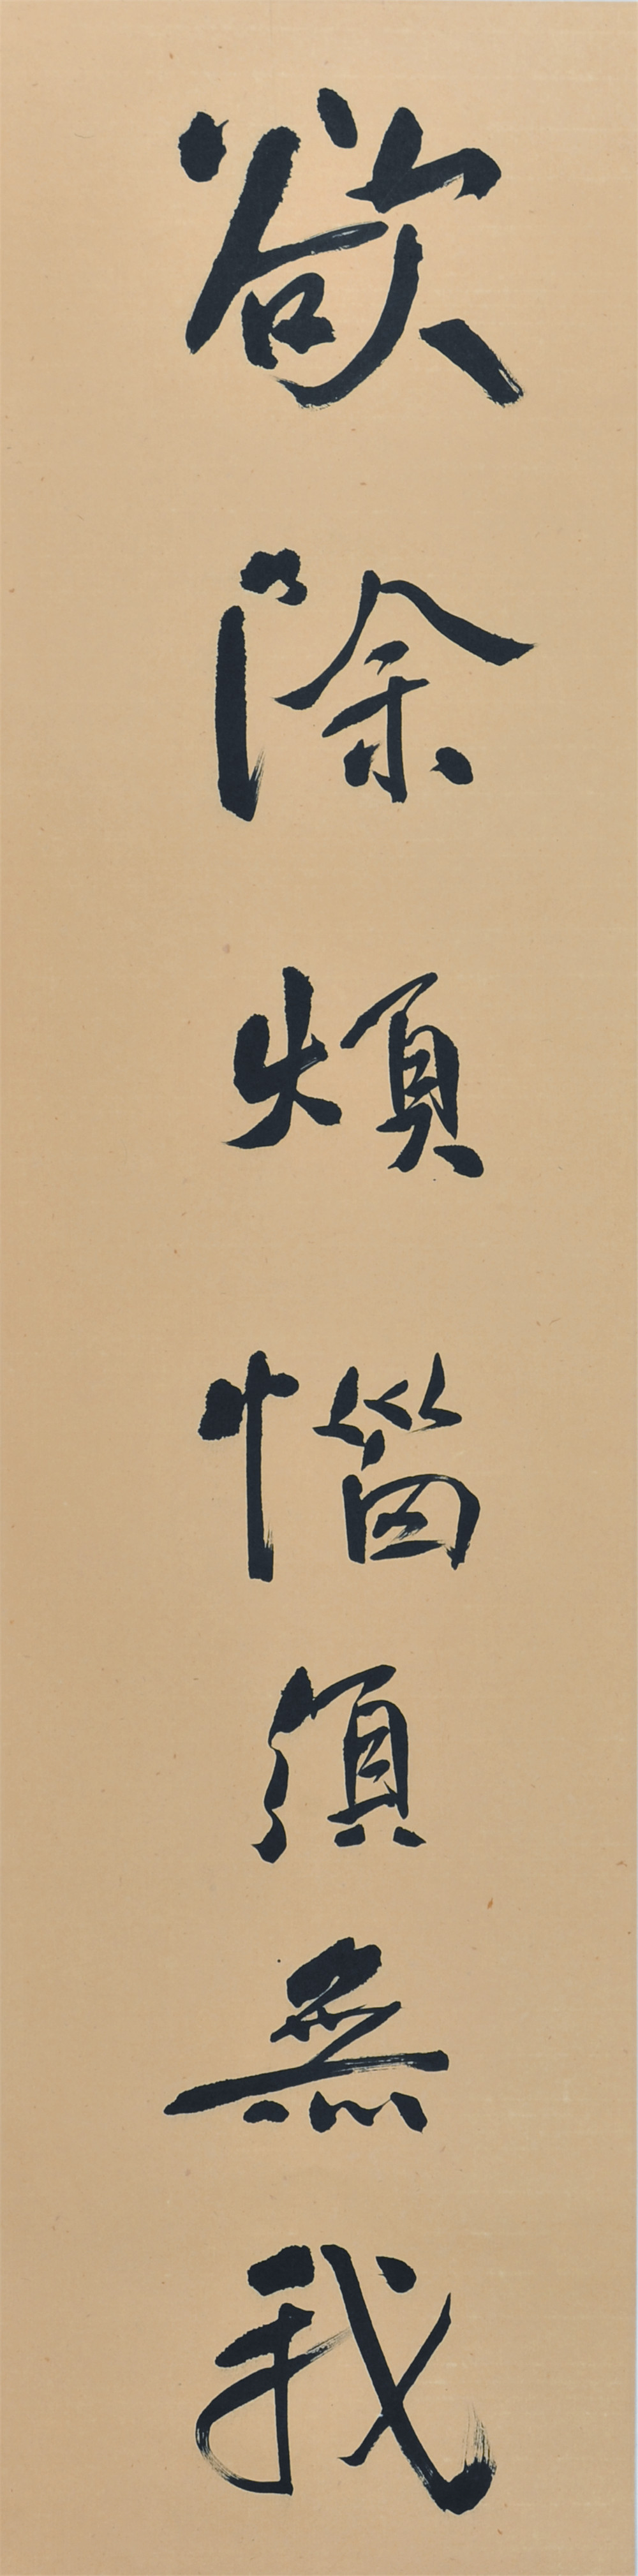 欲除煩惱須無我